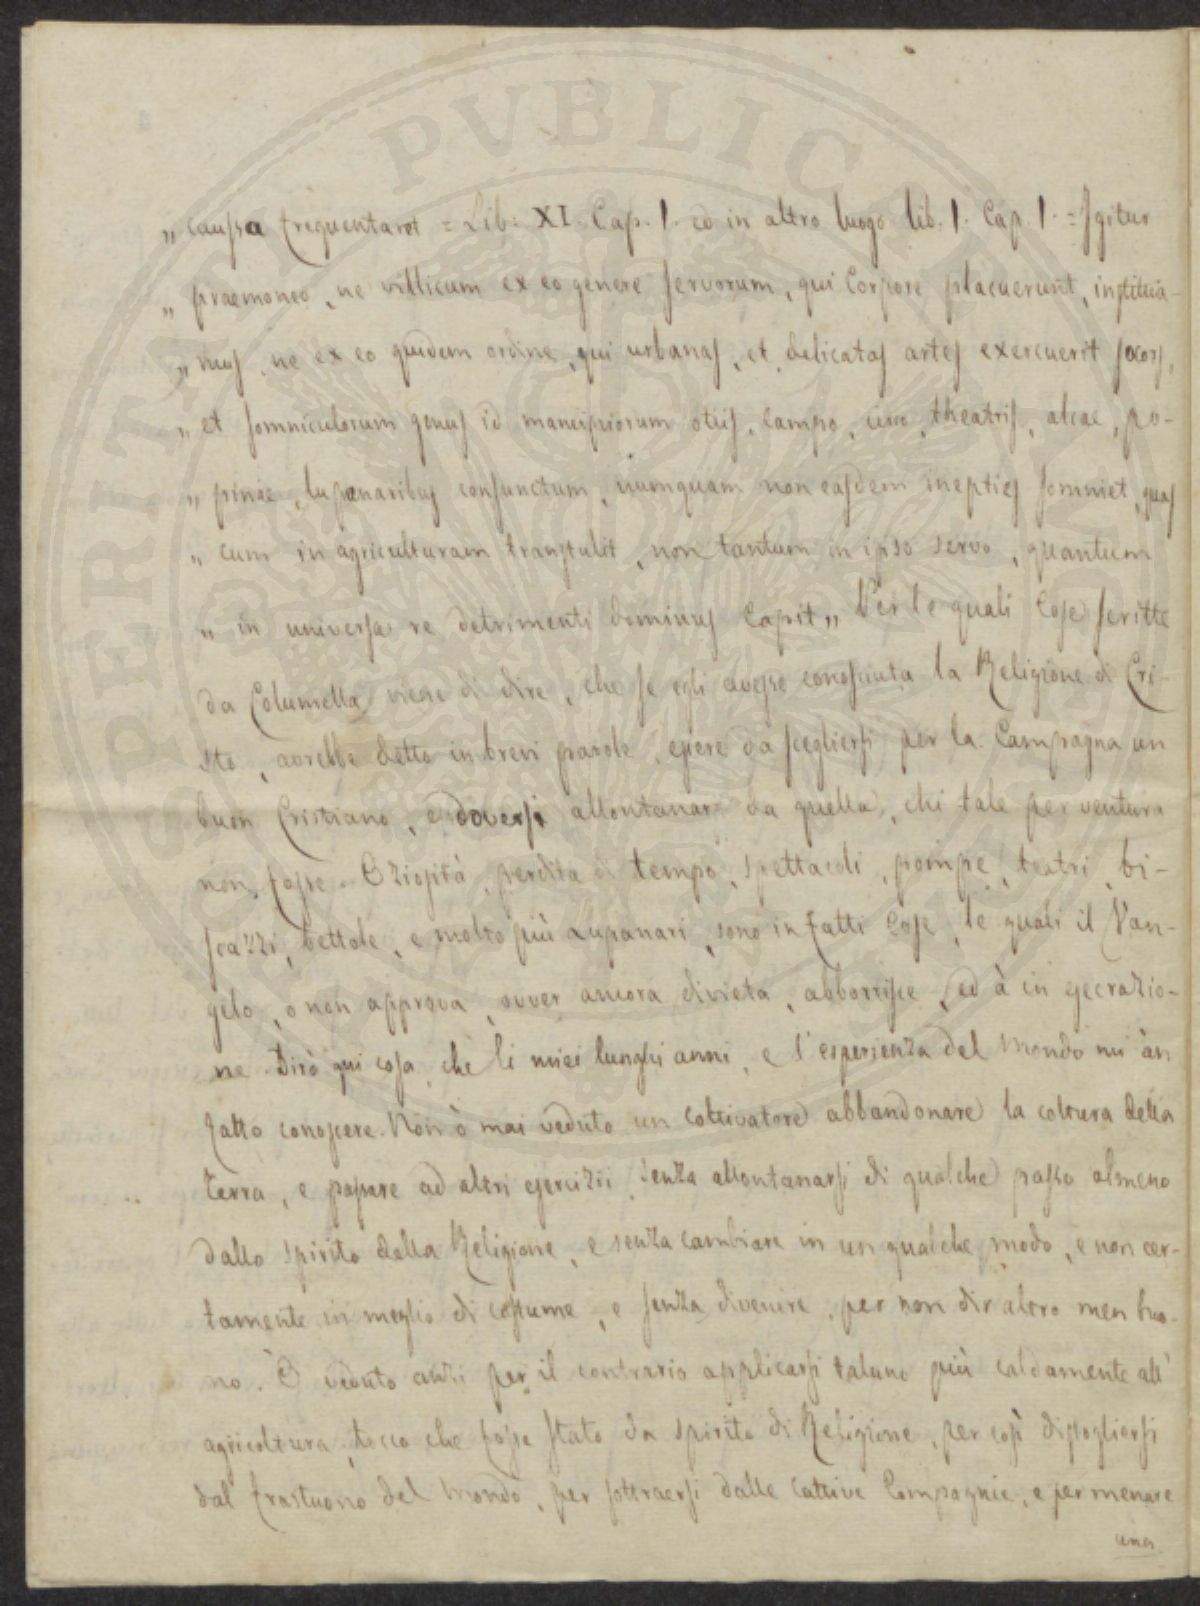 „ caussa frequentaret = Lib: XI. Cap. I. ed in altro luogo lib. I. Cap. I. = Igitur
„ praemoneo, ne villicum ex eo genere servorum, qui corpore placuerunt, instituia-
„ mus, ne ex eo quidem ordine, qui urbanas, et delicatas artes exercuerit socors,
„ et somniculorum genus id mancipiorum otiis, campo, circo, theatris, aleae, po-
„ pinae, lupanaribus consunctum, numquam non easdem inepties somniet, quas
„ cum in agriculturam transtulit, non tantum in ipso servo, quantum
„ in universa re detrimenti dominus capit„ Per le quali cose scritte
da Columella viene di dire, che se egli avesse conosciuta la Religione di Cri-
sto, avrebbe detto in brevi parole, essere da scegliersi per la Campagna un
buon Cristiano, e doversi allontanar da quella, chi tale per ventura
non fosse. Oziosità, perdita di tempo, spettacoli, pompe, teatri, bi-
scazzi, bettole, e molto più Lupanari, sono in fatti cose, le quali il Van-
gelo, o non approva, ovver ancora divieta, abborrisce, ed à in esecrazio-
ne. Dirò qui cosa, che li miei lunghi anni, e l'esperienza del Mondo mi àn
fatto conoscere. Non ò mai veduto un coltivatore abbandonare la coltura della
terra, e passare ad altri esercizii, senza allontanarsi di qualche passo almeno
dallo spirito della Religione, e senza cambiare in un qualche modo, e non cer-
tamente in meglio di costume, e senza divenire, per non dir altro men buo-
no. Ò veduto anzi per il contrario applicarsi taluno più caldamente all'
agricoltura, tocco che fosse stato da spirito di Religione, per così dispogliersi
dal frastuono del Mondo, per sottraersi dalle cattive Compagnie, e per menare
una
PVBLICAE